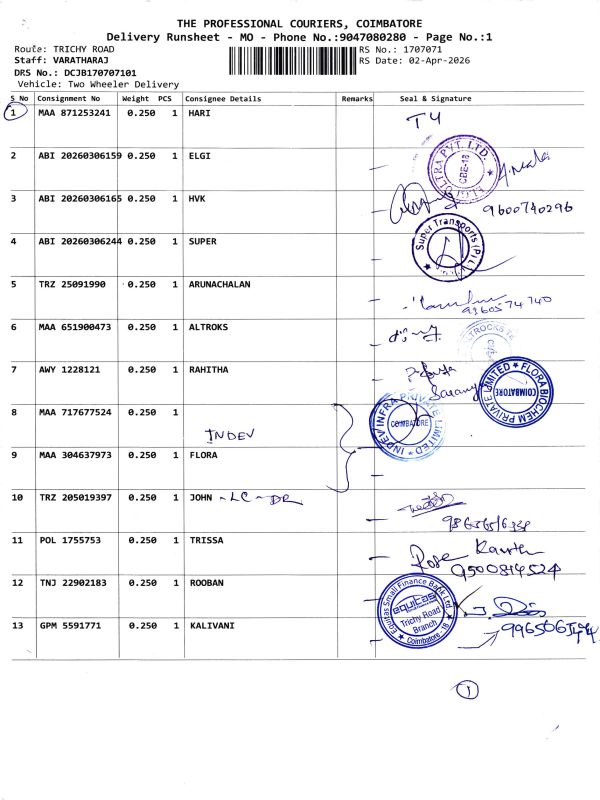 THE PROFESSIONAL COURIERS, COIMBATORE
Delivery Runsheet - MO - Phone No.:9047080280 - Page No.:1
Route: TRICHY ROAD
RS No.: 1707071
Staff: VARATHARAJ
RS Date: 02-Apr-2026
DRS No.: DCJB170707101
Vehicle: Two Wheeler Delivery
S No Consignment No Weight PCS Consignee Details Remarks Seal & Signature
1 MAA 871253241 0.250 1 HARI
2 ABI 20260306159 0.250 1 ELGI
CBE-18
3 ABI 20260306165 0.250 1 HVK
9600740296
4 ABI 20260306244 0.250 1 SUPER
Super Transports (P)
5 TRZ 25091990 0.250 1 ARUNACHALAN
6 MAA 651900473 0.250 1 ALTROKS
7 AWY 1228121 0.250 1 RAHITHA
FLORA BIOCHEM PRIVATE LIMITED
COIMBATORE
8 MAA 717677524 0.250 1
INDEV
INDEV INFRA PRIVATE LIMITED
COIMBATORE
9 MAA 304637973 0.250 1 FLORA
10 TRZ 205019397 0.250 1 JOHN - LC - DR
11 POL 1755753 0.250 1 TRISSA
Rose
9500814524
12 TNJ 22902183 0.250 1 ROOBAN
Equitas Small Finance Bank Ltd.
equitas
Trichy Road
Branch
Coimbatore - 18
13 GPM 5591771 0.250 1 KALIVANI
1